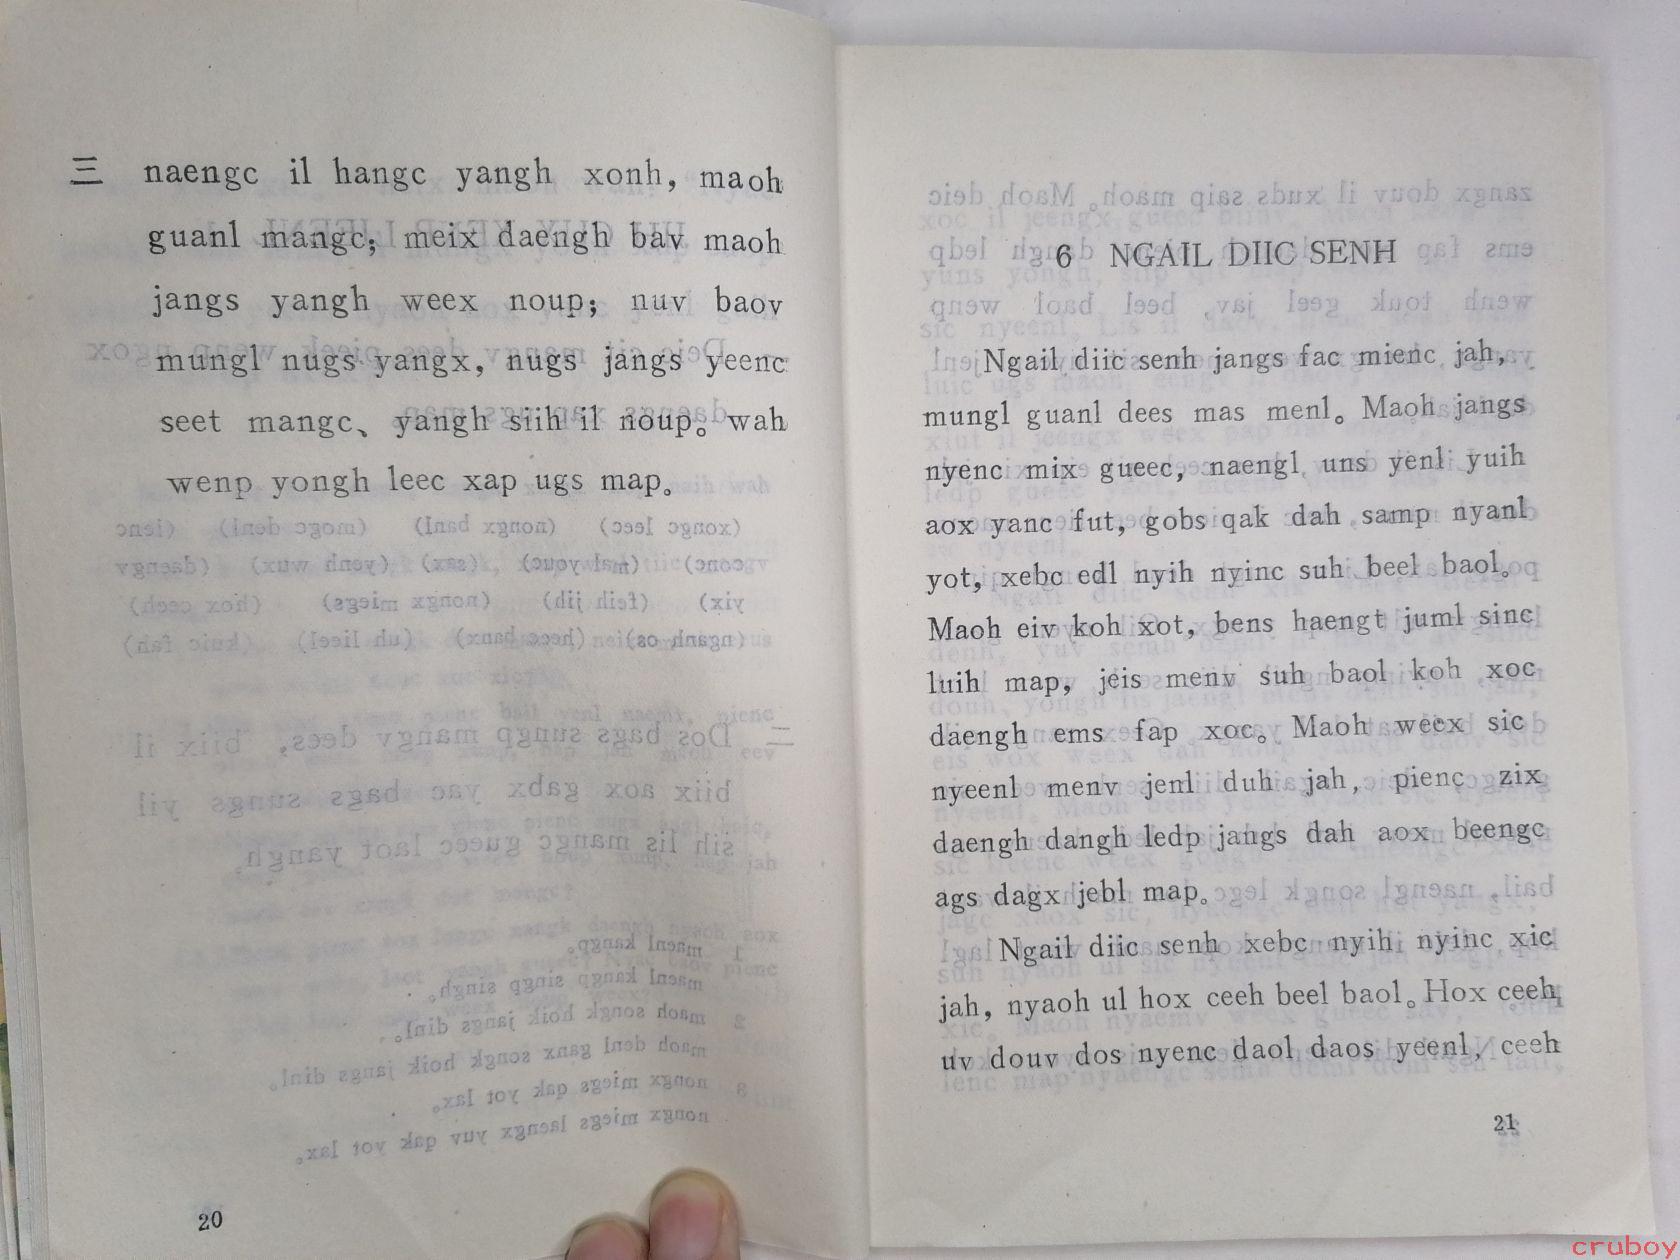 三 naengc il hangc yangh xonh, maoh
guanl mangc; meix daengh bav maoh
jangs yangh weex noup; nuv baov
mungl nugs yangx, nugs jangs yeenc
seet mangc、yangh siih il noup。wah
wenp yongh leec xap ugs map。
20
6 NGAIL DIIC SENH
Ngail diic senh jangs fac mienc jah,
mungl guanl dees mas menl。Maoh jangs
nyenc mix gueec, naengl uns yenl yuih
aox yanc fut, gobs qak dah samp nyanl
yot, xebc edl nyih nyinc suh beel baol。
Maoh eiv koh xot, bens haengt juml sinc
luih map, jeis menv suh baol koh xoc
daengh ems fap xoc。Maoh weex sic
nyeenl menv jenl duh jah, pienc zix
daengh dangh ledp jangs dah aox beengc
ags dagx jebl map。
Ngail diic senh xebc nyih nyinc xic
jah, nyaoh ul hox ceeh beel baol。Hox ceeh
uv douv dos nyenc daol daos yeenl, ceeh
21
cruboy